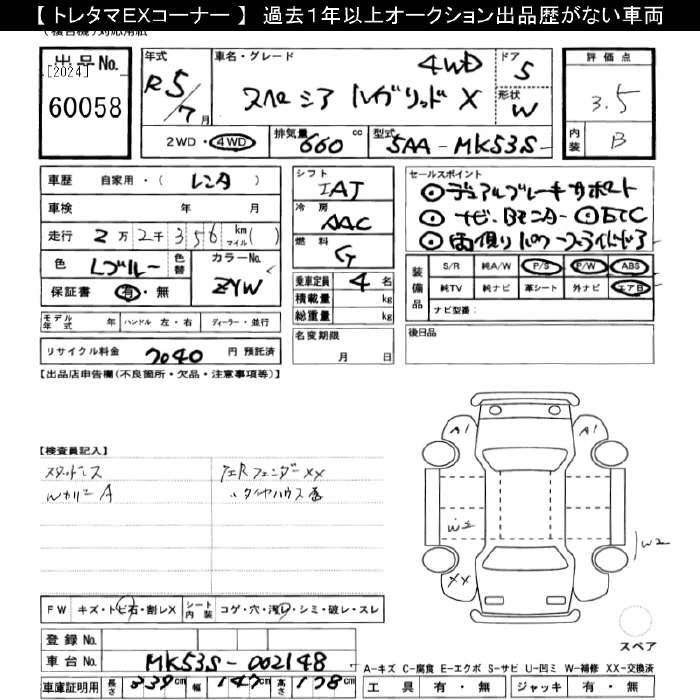 【 トレタマEXコーナー 】 過去1年以上オークション出品歴がない車両
出品No.
[2024]
60058
年式
R5/7月
車名・グレード
4WD
スペーシア ハイブリッド X
ドア
5
形状
W
評価点
3.5
内装
B
2WD・4WD
排気量 660 cc
型式 5AA-MK53S
車歴 自家用・( レンタ )
車検 年 月
走行 2万2千356 km マイル( )
色 Lブルー 色替
カラーNo. ZYW
保証書 有・無
シフト
IAT
冷房
AAC
燃料
G
乗車定員 4 名
積載量 kg
総重量 kg
名変期限
月 日
セールスポイント
⊙デュアルブレーキサポート
⊙ナビ、Bモニター ⊙ETC
⊙両側パワースライドドア
装備品
S/R 純A/W P/S P/W ABS
純TV 純ナビ 革シート 外ナビ エアB
ナビ型番:
後日品
モデル年式 年 ハンドル 左・右 ディーラー・並行
リサイクル料金 7040 円 預託済
【出品店申告欄(不良箇所・欠品・注意事項等)】
【検査員記入】
スタッドレス
Wカリー A
左Rフェンダー XX
〃 タイヤハウス
A1
A1
W2
W2
XX
FW キズ・トビ石・割レX
シート内装 コゲ・穴・汚レ・シミ・破レ・スレ
スペア
登録No.
車台No. MK53S-002148
A-キズ C-腐食 E-エクボ S-サビ U-凹ミ W-補修 XX-交換済
車庫証明用 長さ 339cm 幅 147cm 高さ 178cm
工具 有・無 ジャッキ 有・無